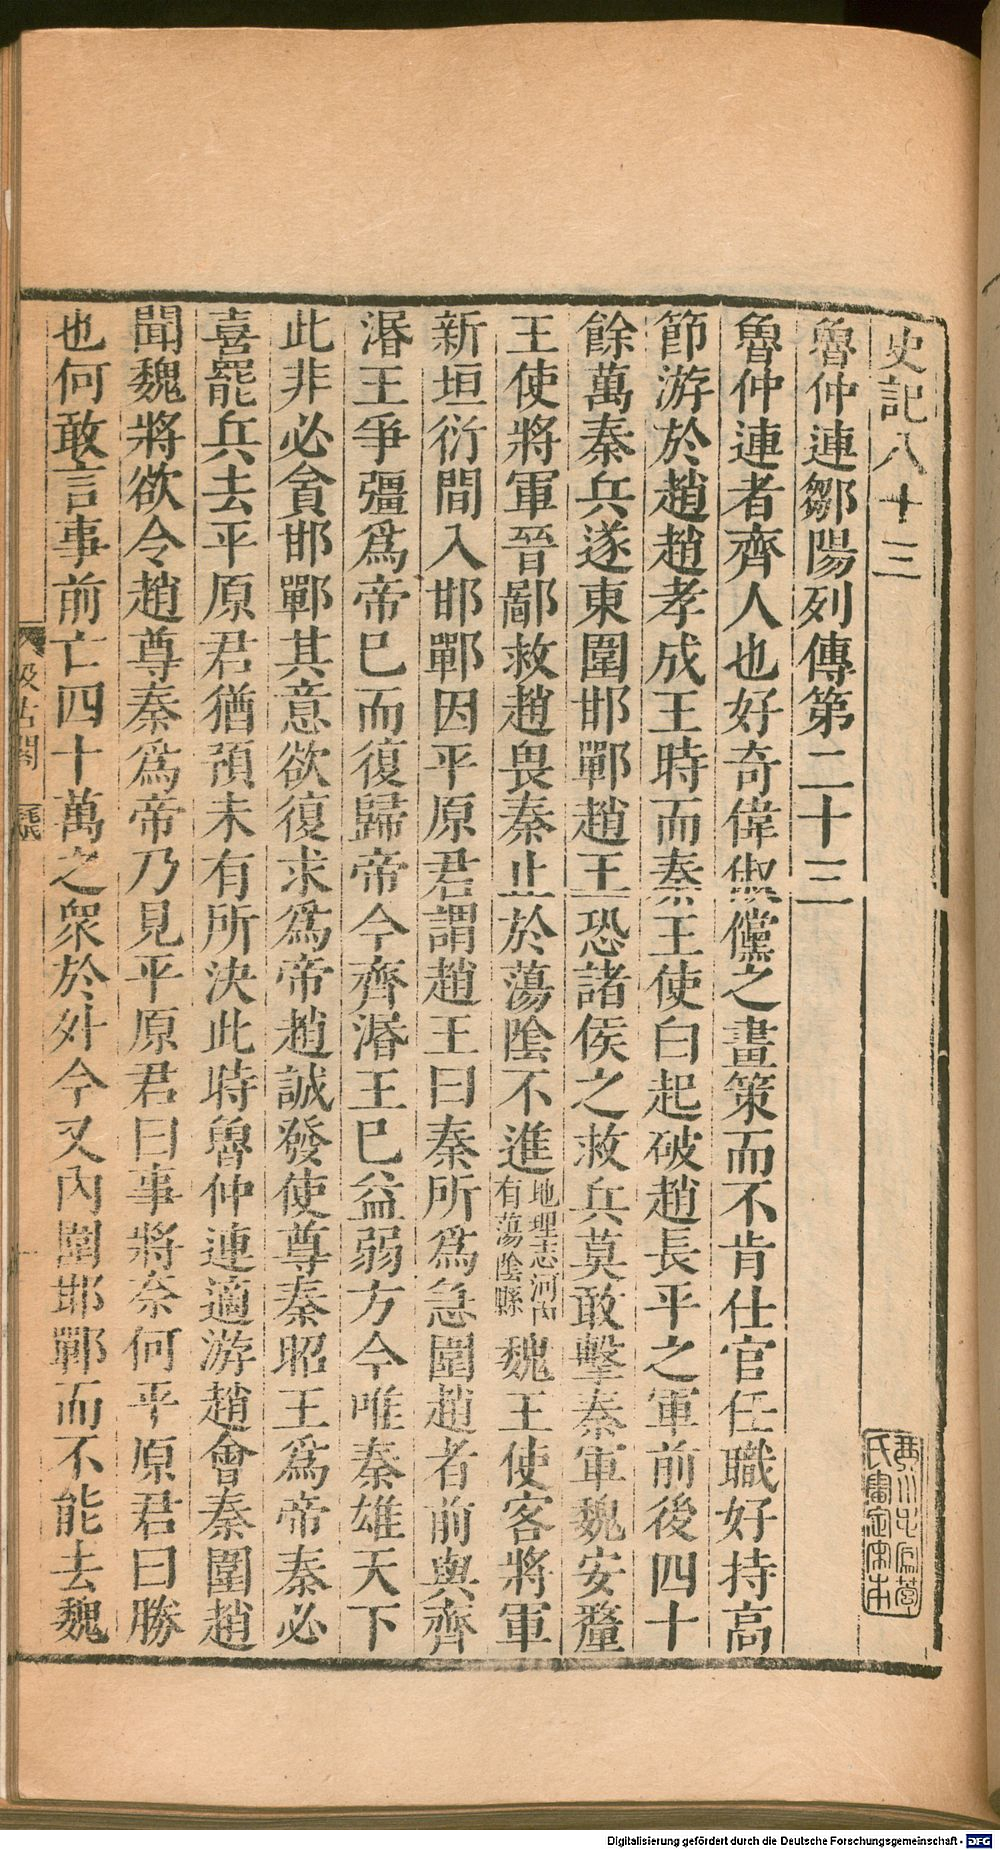 史記八十三
魯仲連鄒陽列傳第二十三
魯仲連者齊人也好奇偉俶儻之畫策而不肯仕官任職好持高
節游於趙趙孝成王時而秦王使白起破趙長平之軍前後四十
餘萬秦兵遂東圍邯鄲趙王恐諸侯之救兵莫敢擊秦軍魏安釐
王使將軍晉鄙救趙畏秦止於蕩陰不進地理志河內有蕩陰縣魏王使客將軍
新垣衍間入邯鄲因平原君謂趙王曰秦所爲急圍趙者前與齊
湣王爭彊爲帝已而復歸帝今齊湣王已益弱方今唯秦雄天下
此非必貪邯鄲其意欲復求爲帝趙誠發使尊秦昭王爲帝秦必
喜罷兵去平原君猶預未有所決此時魯仲連適游趙會秦圍趙
聞魏將欲令趙尊秦爲帝乃見平原君曰事將奈何平原君曰勝
也何敢言事前亡四十萬之衆於外今又內圍邯鄲而不能去魏
汲古閣
Digitalisierung gefördert durch die Deutsche Forschungsgemeinschaft - DFG